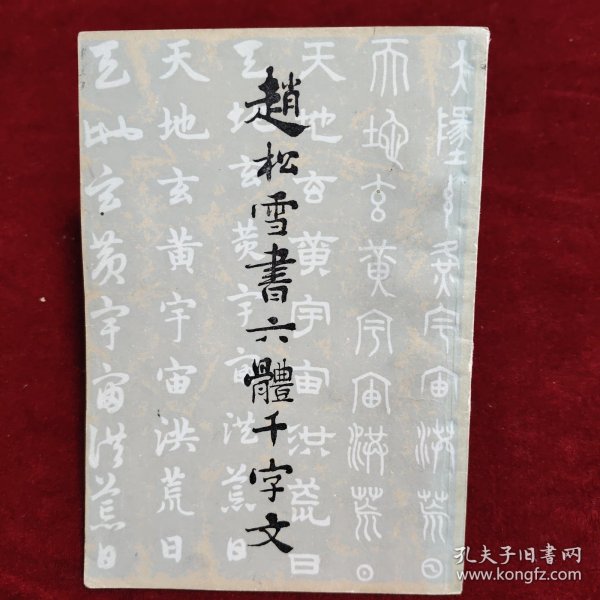 趙松雪書六體千字文
天地玄黃宇宙洪荒日
天地玄黃宇宙洪荒日
天地玄黃宇宙洪荒日
天地玄黃宇宙洪荒日
天地玄黃宇宙洪荒日
天地玄黃宇宙洪荒日
孔夫子旧书网
www.kongfz.com